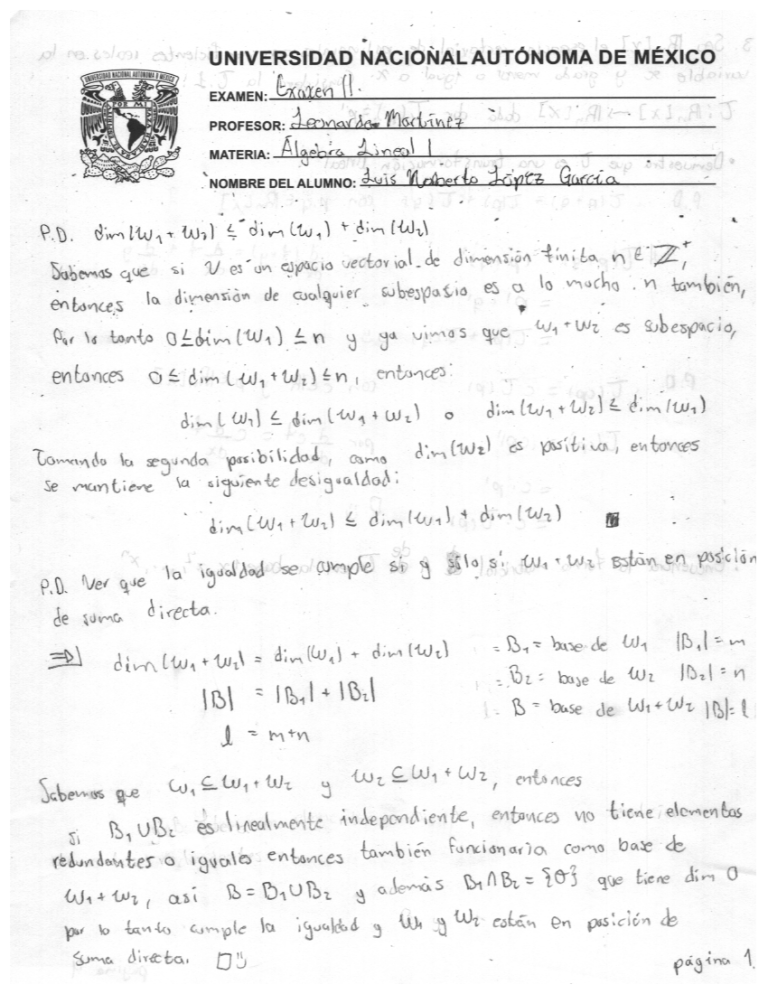 UNIVERSIDAD NACIONAL AUTÓNOMA DE MÉXICO
EXAMEN: Examen II.
PROFESOR: Leonardo Martínez
MATERIA: Álgebra Lineal I
NOMBRE DEL ALUMNO: Luis Norberto López García
P.D. dim(W₁ + W₂) ≤ dim(W₁) + dim(W₂)
Sabemos que si V es un espacio vectorial de dimensión finita n ∈ ℤ⁺,
entonces la dimensión de cualquier subespasio es a lo mucho n también,
Por lo tanto 0 ≤ dim(W₁) ≤ n y ya vimos que W₁ + W₂ es subespacio,
entonces 0 ≤ dim(W₁ + W₂) ≤ n, entonces:
dim(W₁) ≤ dim(W₁ + W₂) o dim(W₁ + W₂) ≤ dim(W₁)
Tomando la segunda posibilidad, como dim(W₂) es positiva, entonces
se mantiene la siguiente desigualdad:
dim(W₁ + W₂) ≤ dim(W₁) + dim(W₂)
P.D. Ver que la igualdad se cumple si y sólo si W₁ + W₂ están en posición
de suma directa.
⇒| dim(W₁ + W₂) = dim(W₁) + dim(W₂) B₁ = base de W₁ |B₁| = m
|B| = |B₁| + |B₂| B₂ = base de W₂ |B₂| = n
l = m+n B = base de W₁ + W₂ |B| = l
Sabemos que W₁ ⊆ W₁ + W₂ y W₂ ⊆ W₁ + W₂, entonces
si B₁ ∪ B₂ es linealmente independiente, entonces no tiene elementos
redundantes o iguales entonces también funcionaria como base de
W₁ + W₂, así B = B₁ ∪ B₂ y además B₁ ∩ B₂ = {θ} que tiene dim 0
por lo tanto cumple la igualdad y W₁ y W₂ están en posición de
suma directa. □
página 1